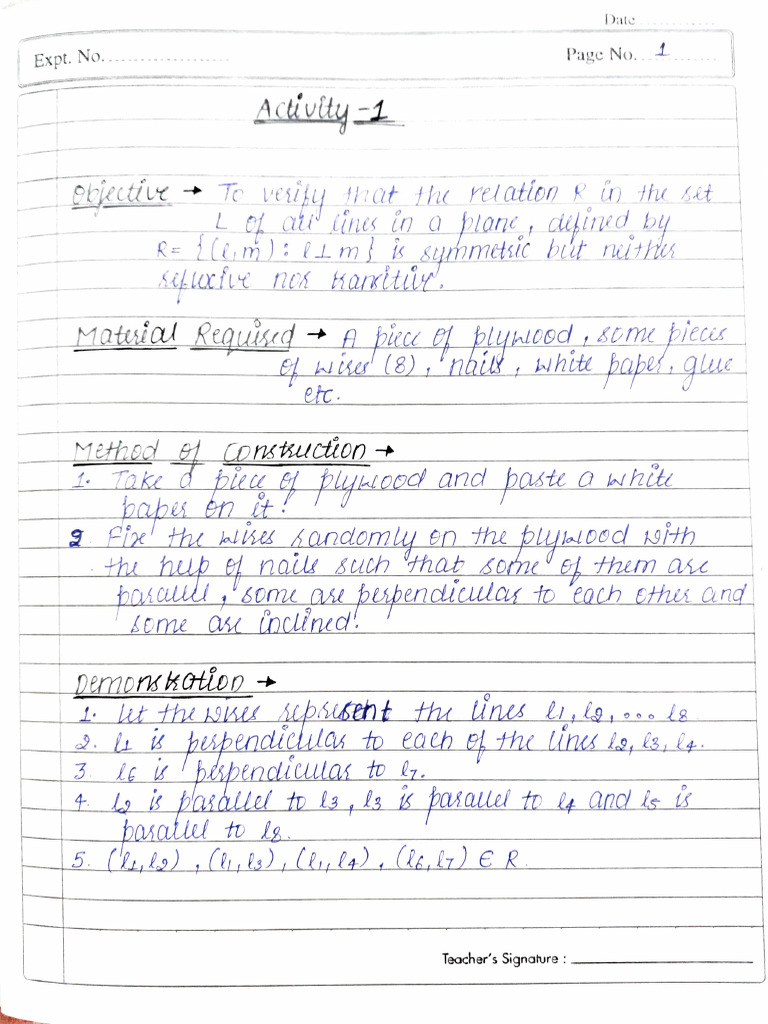 Date ............
Expt. No. ...................
Page No. 1
Activity-1
Objective → To verify that the relation R in the set
L of all lines in a plane, defined by
R= {(l,m) : l⊥m} is symmetric but neither
reflexive nor transitive.
Material Required → A piece of plywood, some pieces
of wires (8), nails, white paper, glue
etc.
Method of Construction →
1. Take a piece of plywood and paste a white
paper on it.
2. Fix the wires randomly on the plywood with
the help of nails such that some of them are
parallel, some are perpendicular to each other and
some are inclined.
Demonstration →
1. Let the wires represent the lines l1, l2, ... l8
2. l1 is perpendicular to each of the lines l2, l3, l4.
3. l6 is perpendicular to l7.
4. l2 is parallel to l3, l3 is parallel to l4 and l5 is
parallel to l8.
5. (l1,l2), (l1,l3), (l1,l4), (l6,l7) ∈ R.
Teacher's Signature : ____________________